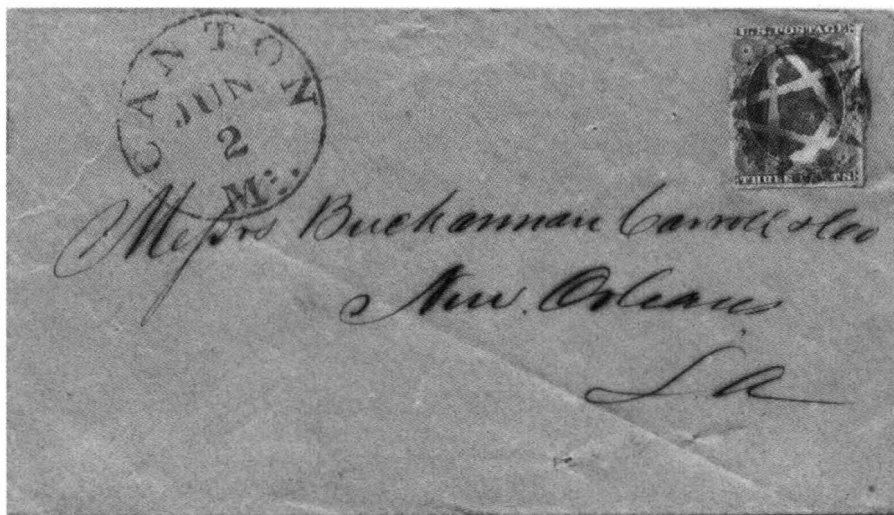 CANTON
JUN
2
Mi.
U.S. POSTAGE
THREE CENTS
Messrs Buchannan Carroll & Co
New. Orleans
LA